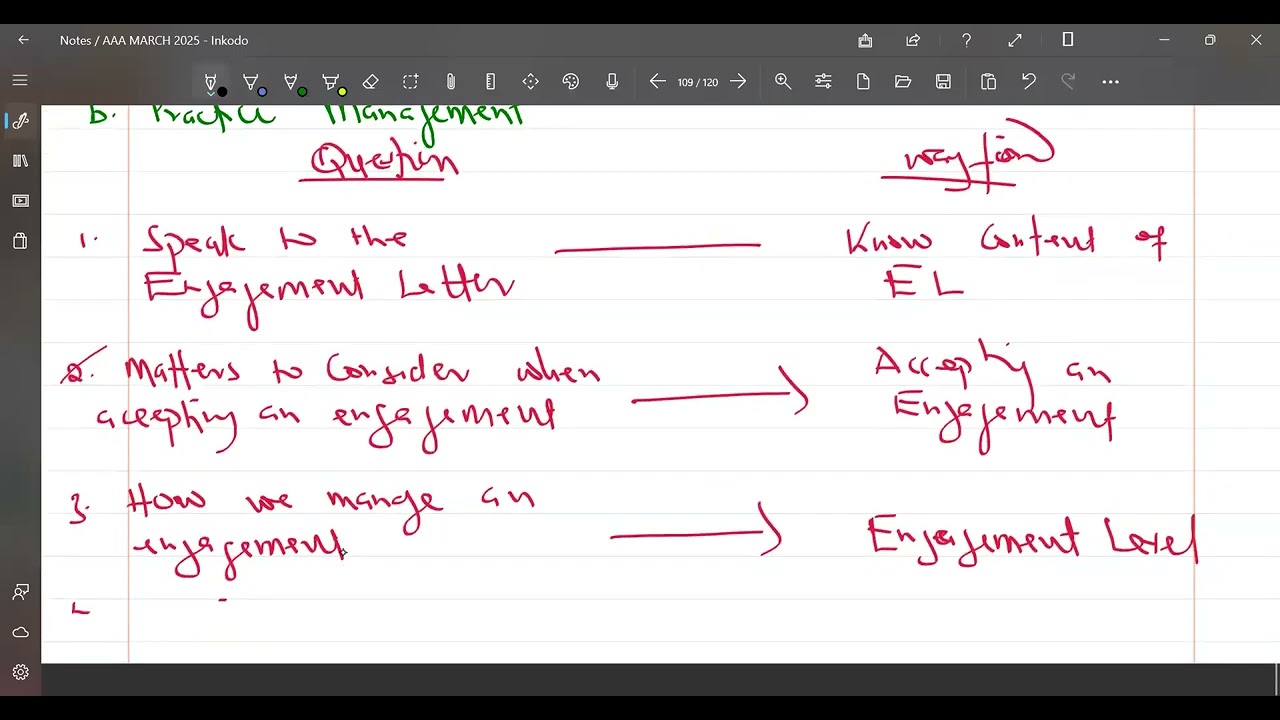 Notes / AAA MARCH 2025 - Inkodo
109 / 120
b. Practice Management
Question way fion
1. Speak to the Know Content of
Engagement Letter EL
2. Matters to Consider when Accepting an
accepting an engagement Engagement
3. How we mange an
engagement Engagement Level